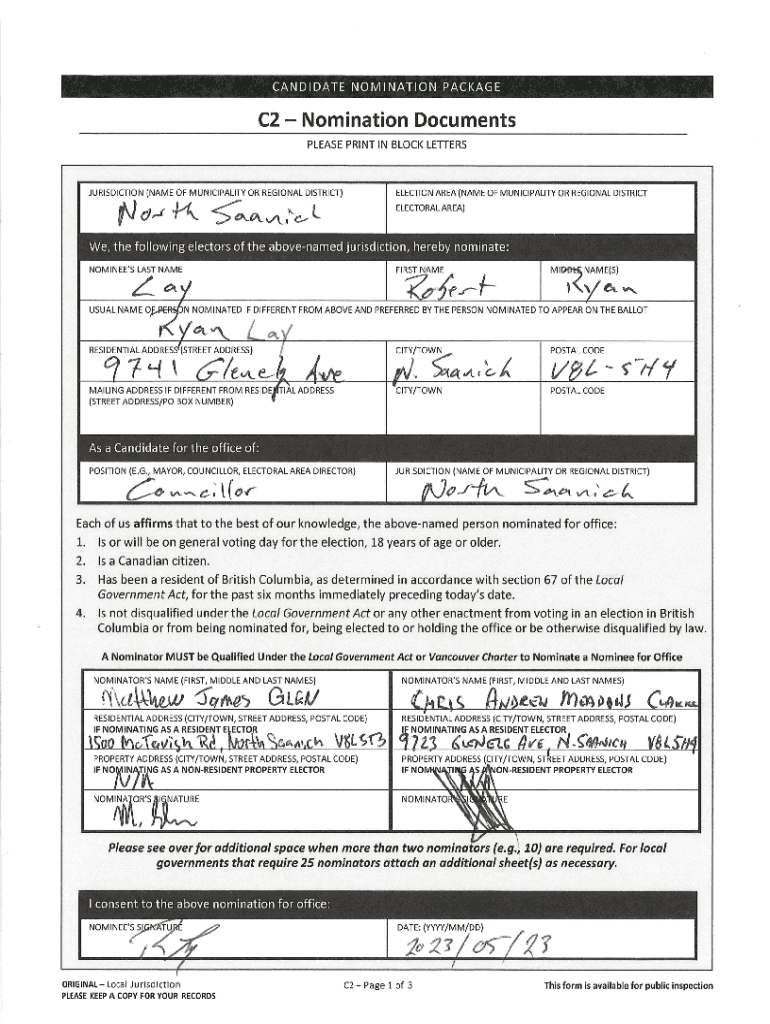 CANDIDATE NOMINATION PACKAGE
C2 – Nomination Documents
PLEASE PRINT IN BLOCK LETTERS
JURISDICTION (NAME OF MUNICIPALITY OR REGIONAL DISTRICT)
North Saanich
ELECTION AREA (NAME OF MUNICIPALITY OR REGIONAL DISTRICT
ELECTORAL AREA)
We, the following electors of the above-named jurisdiction, hereby nominate:
NOMINEE'S LAST NAME FIRST NAME MIDDLE NAME(S)
Lay Robert Ryan
USUAL NAME OF PERSON NOMINATED IF DIFFERENT FROM ABOVE AND PREFERRED BY THE PERSON NOMINATED TO APPEAR ON THE BALLOT
Ryan Lay
RESIDENTIAL ADDRESS (STREET ADDRESS) CITY/TOWN POSTAL CODE
9741 Glenelg Ave N. Saanich V8L-5H4
MAILING ADDRESS IF DIFFERENT FROM RESIDENTIAL ADDRESS CITY/TOWN POSTAL CODE
(STREET ADDRESS/PO BOX NUMBER)
As a Candidate for the office of:
POSITION (E.G., MAYOR, COUNCILLOR, ELECTORAL AREA DIRECTOR) JURISDICTION (NAME OF MUNICIPALITY OR REGIONAL DISTRICT)
Councillor North Saanich
Each of us affirms that to the best of our knowledge, the above-named person nominated for office:
1. Is or will be on general voting day for the election, 18 years of age or older.
2. Is a Canadian citizen.
3. Has been a resident of British Columbia, as determined in accordance with section 67 of the Local
Government Act, for the past six months immediately preceding today's date.
4. Is not disqualified under the Local Government Act or any other enactment from voting in an election in British
Columbia or from being nominated for, being elected to or holding the office or be otherwise disqualified by law.
A Nominator MUST be Qualified Under the Local Government Act or Vancouver Charter to Nominate a Nominee for Office
NOMINATOR'S NAME (FIRST, MIDDLE AND LAST NAMES)
Matthew James GLEN
RESIDENTIAL ADDRESS (CITY/TOWN, STREET ADDRESS, POSTAL CODE)
IF NOMINATING AS A RESIDENT ELECTOR
1500 McTavish Rd, North Saanich V8L5T3
PROPERTY ADDRESS (CITY/TOWN, STREET ADDRESS, POSTAL CODE)
IF NOMINATING AS A NON-RESIDENT PROPERTY ELECTOR
N/A
NOMINATOR'S SIGNATURE
M. Glen
NOMINATOR'S NAME (FIRST, MIDDLE AND LAST NAMES)
CHRIS ANDREW MEADOWS CLARKE
RESIDENTIAL ADDRESS (CITY/TOWN, STREET ADDRESS, POSTAL CODE)
IF NOMINATING AS A RESIDENT ELECTOR
9723 GLENELG AVE, N. SAANICH V8L5H4
PROPERTY ADDRESS (CITY/TOWN, STREET ADDRESS, POSTAL CODE)
IF NOMINATING AS A NON-RESIDENT PROPERTY ELECTOR
N/A
NOMINATOR'S SIGNATURE
Please see over for additional space when more than two nominators (e.g., 10) are required. For local
governments that require 25 nominators attach an additional sheet(s) as necessary.
I consent to the above nomination for office:
NOMINEE'S SIGNATURE DATE: (YYYY/MM/DD)
2023/05/23
ORIGINAL – Local Jurisdiction C2 – Page 1 of 3 This form is available for public inspection
PLEASE KEEP A COPY FOR YOUR RECORDS